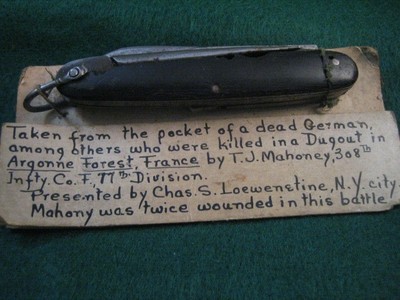 Taken from the pocket of a dead German,
among others who were killed in a Dugout in
Argonne Forest, France by T.J. Mahoney, 308th
Infty. Co. F., 77th Division.
Presented by Chas. S. Loewenstine, N.Y. city.
Mahony was twice wounded in this battle